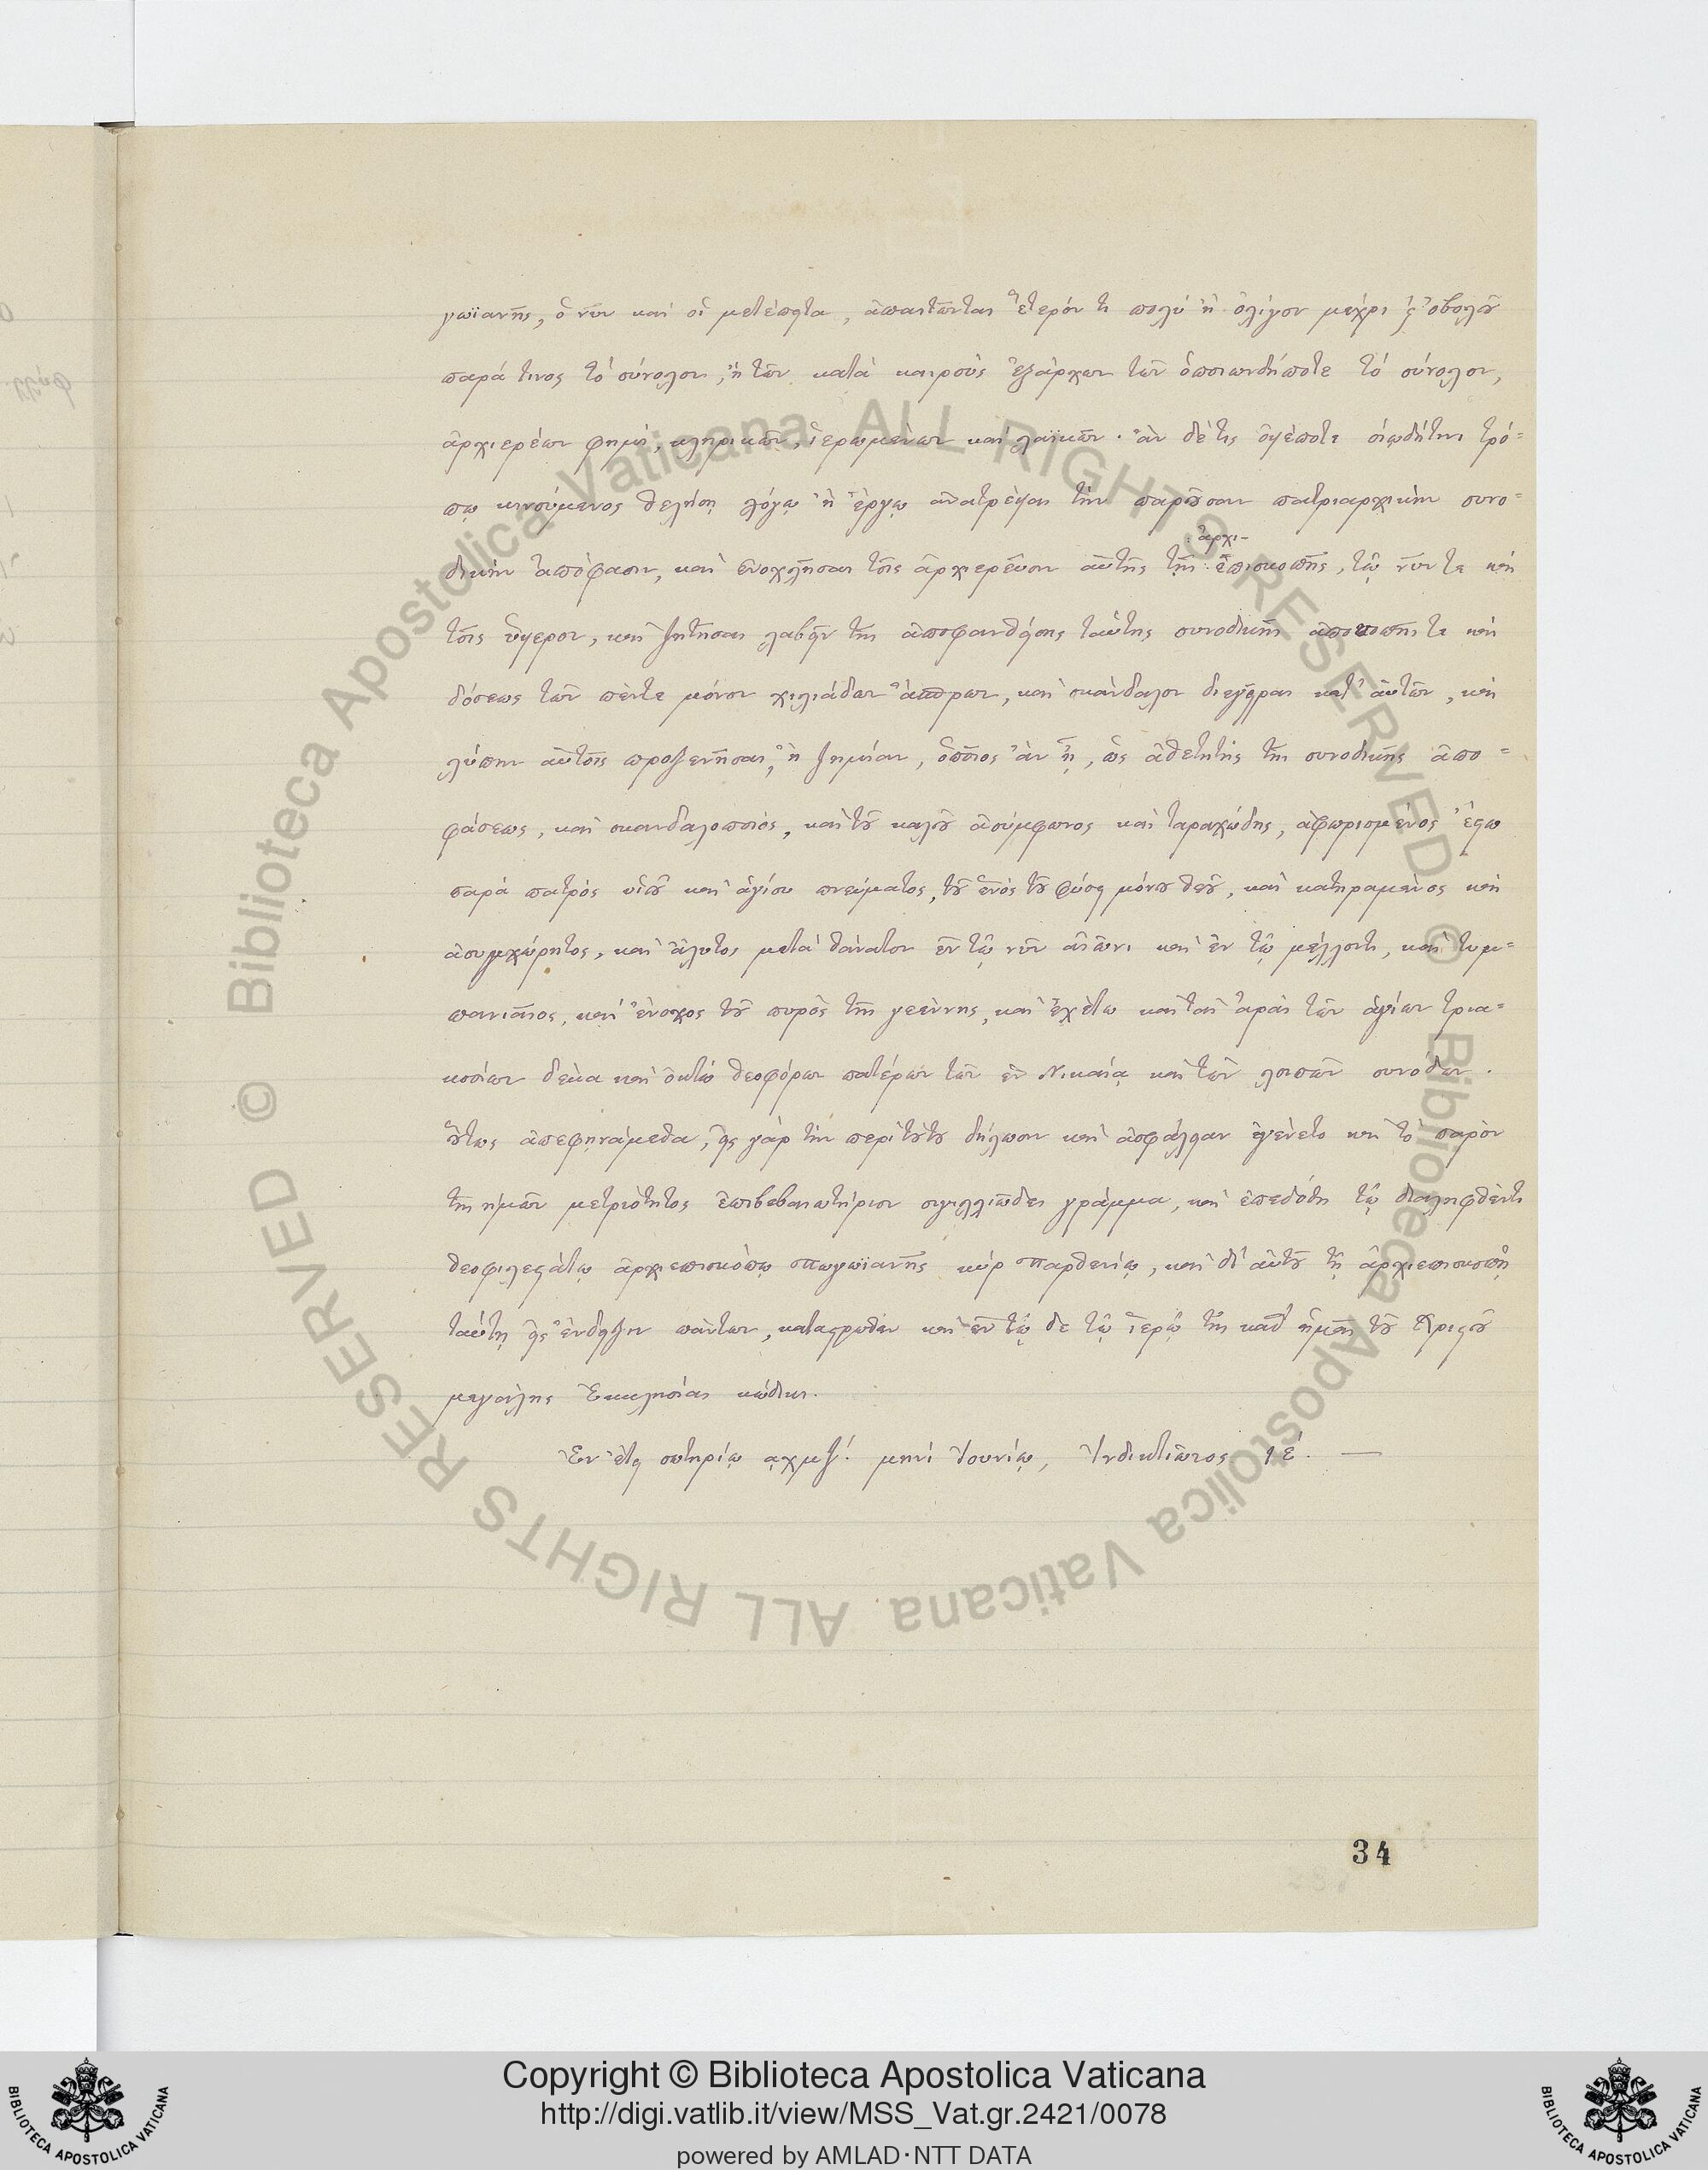 γωϊανῆς, ὁ νῦν καὶ οἱ μετέπειτα, ἀπαιτῶνται ἕτερόν τι πολὺ ἢ ὀλίγον μέχρι ϛ ὀβολοῦ
παρά τινος τὸ σύνολον, ἢ τῶν κατὰ καιροὺς ἐξάρχων τῶν ὁποιωνδήποτε τὸ σύνολον,
ἀρχιερέων φημὶ, κληρικῶν, ἱερωμένων καὶ λαϊκῶν· ἂν δέ τις ὀψέποτε οἱῳδήτινι τρό=
πῳ κινούμενος θελήσῃ λόγῳ ἢ ἔργῳ ἀνατρέψαι τὴν παροῦσαν πατριαρχικὴν συνο=
:ἀρχι-
δικὴν ἀπόφασιν, καὶ ἐνοχλῆσαι τοῖς ἀρχιερεῦσιν αὐτῆς τῆς: ἐπισκοπῆς, τῷ νῦν τε καὶ
τοῖς ὕστερον, καὶ ζητῆσαι λαβεῖν τῆς ἀποφανθείσης ταύτης συνοδικῆς ἀποκοπῆς τε καὶ
δόσεως τῶν πέντε μόνον χιλιάδων ἄσπρων, καὶ σκάνδαλον διεγεῖραι κατ' αὐτῶν, καὶ
λύπην αὐτοῖς προξενῆσαι, ἢ ζημίαν, ὁποῖος ἂν ᾖ, ὡς ἀθετητὴς τῆς συνοδικῆς ἀπο=
φάσεως, καὶ σκανδαλοποιὸς, καὶ τοῦ καλοῦ ἀσύμφωνος καὶ ταραχώδης, ἀφωρισμένος ἔστω
παρὰ πατρὸς υἱοῦ καὶ ἁγίου πνεύματος, τοῦ ἑνὸς τοῦ φύσει μόνου θεοῦ, καὶ κατηραμένος καὶ
ἀσυγχώρητος, καὶ ἄλυτος μετὰ θάνατον ἐν τῷ νῦν αἰῶνι καὶ ἐν τῷ μέλλοντι, καὶ τυμ=
πανιαῖος, καὶ ἔνοχος τοῦ πυρὸς τῆς γεέννης, καὶ ἐχέτω καὶ τὰς ἀρὰς τῶν ἁγίων τρια=
κοσίων δέκα καὶ ὀκτὼ θεοφόρων πατέρων τῶν ἐν Νικαίᾳ καὶ τῶν λοιπῶν συνόδων.
οὕτως ἀπεφηνάμεθα, εἰς γὰρ τὴν περὶ τούτου δήλωσιν καὶ ἀσφάλειαν ἐγένετο καὶ τὸ παρὸν
τῆς ἡμῶν μετριότητος ἐπιβεβαιωτήριον σιγιλλιῶδες γράμμα, καὶ ἐπεδόθη τῷ διαληφθέντι
θεοφιλεστάτῳ ἀρχιεπισκόπῳ Πωγωϊανῆς κὺρ Παρθενίῳ, καὶ δι' αὐτοῦ τῇ ἀρχιεπισκοπῇ
ταύτῃ εἰς ἔνδειξιν πάντων, καταστρωθὲν καὶ ἐν τῷ δε τῷ ἱερῷ τῆς καθ' ἡμᾶς τοῦ Χριστοῦ
μεγάλης Ἐκκλησίας κώδικι.
Ἐν ἔτει σωτηρίῳ αχμζʹ. μηνὶ Ἰουνίῳ, Ἰνδικτιῶνος ιεʹ. —
34
Copyright © Biblioteca Apostolica Vaticana
http://digi.vatlib.it/view/MSS_Vat.gr.2421/0078
powered by AMLAD·NTT DATA